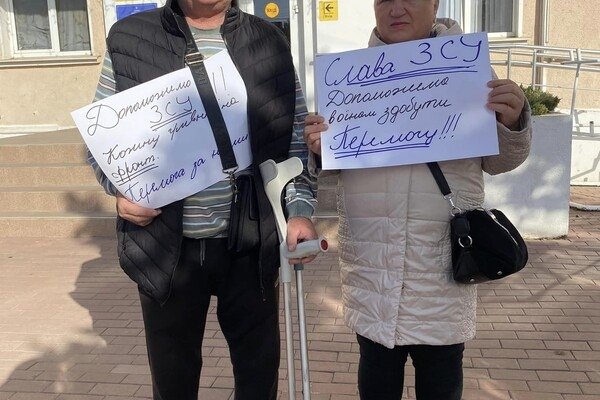 Допоможемо
ЗСУ !!!
Кожну гривню на
фронт.
Перемога за нами
Слава ЗСУ
Допоможемо
воїнам здобути
Перемогу!!!